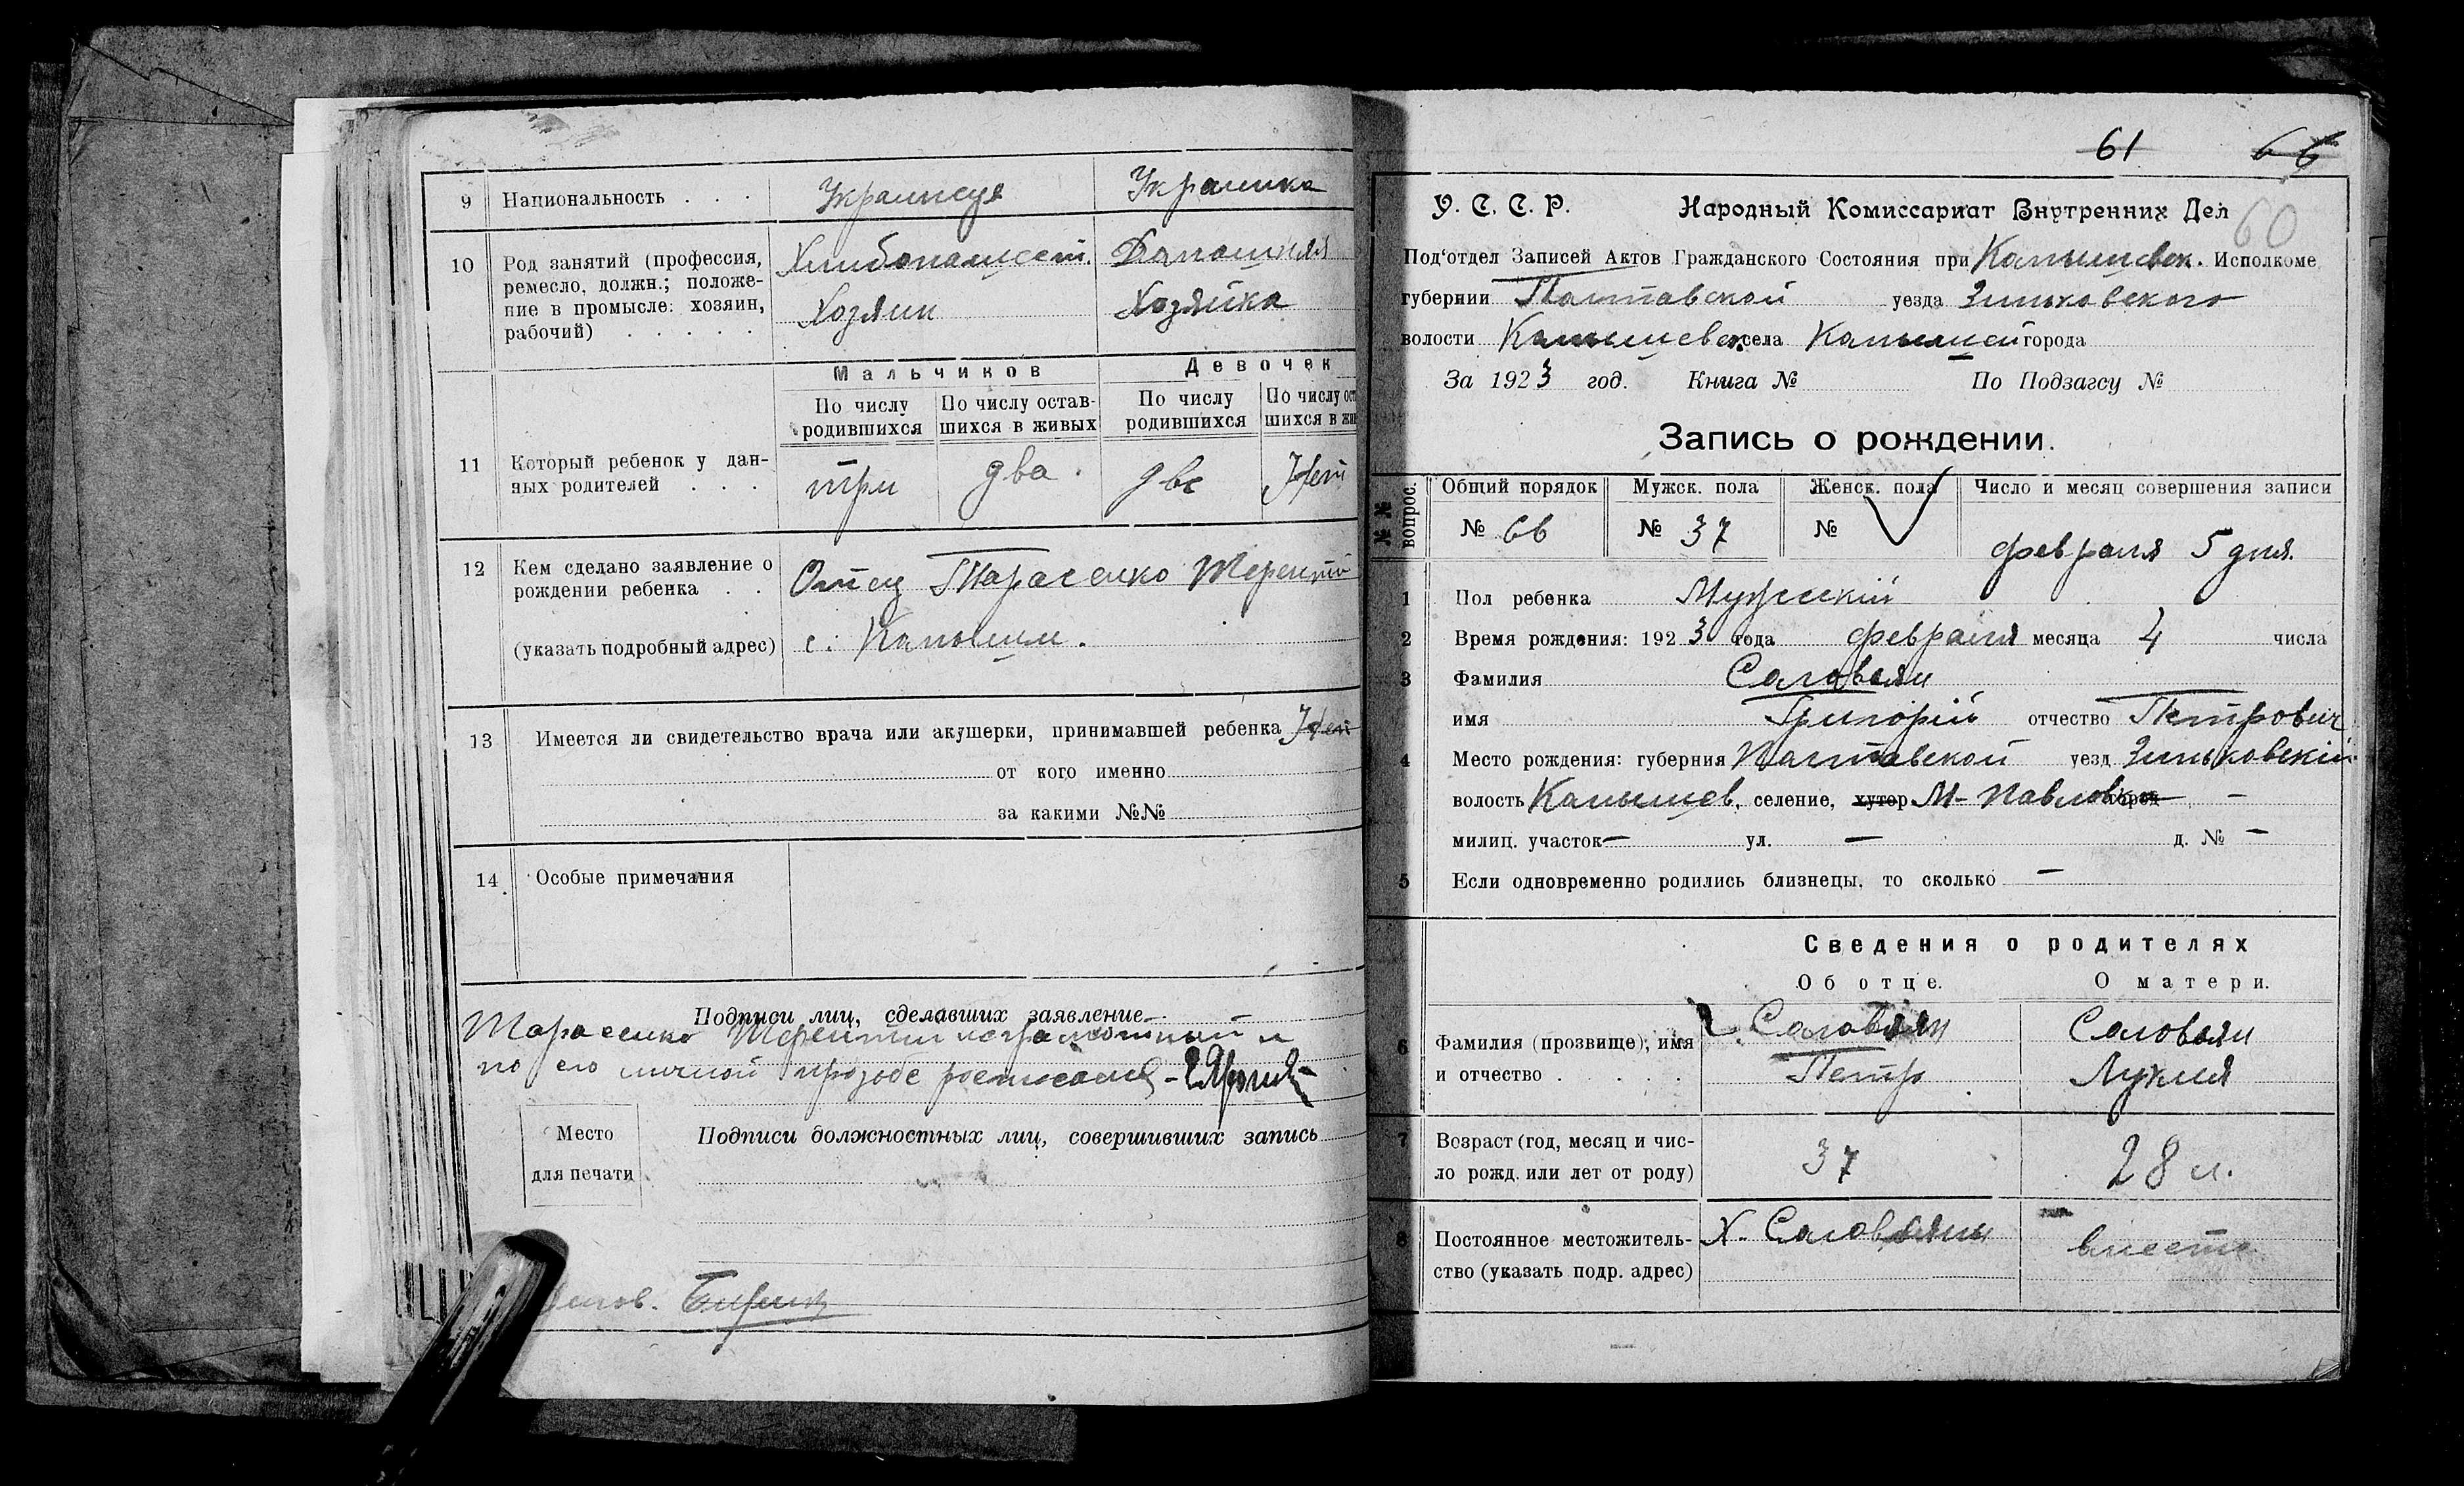 9 Национальность . . . Украинец Украинка
10 Род занятий (профессия,
ремесло, должн.; положе-
ние в промысле: хозяин,
рабочий) . . . . .
Домашняя
Хозяин Хозяйка
Мальчиков Девочек
По числу
родившихся
По числу остав-
шихся в живых
По числу
родившихся
По числу ост
шихся в жи
11 Который ребенок у дан-
ных родителей . . .
три два две Нет
12 Кем сделано заявление о
рождении ребенка . .
(указать подробный адрес)
Отец Тарасенко Терентий
с. Капыши.
13 Имеется ли свидетельство врача или акушерки, принимавшей ребенка Нет
от кого именно
за какими №№
14 Особые примечания
Подписи лиц, сделавших заявление
Тарасенко Терентий неграмотный и
по его личной прозбе
Место
для печати
Подписи должностных лиц, совершивших запись
61 66
60
У. С. С. Р. Народный Комиссариат Внутренних Дел
Под'отдел Записей Актов Гражданского Состояния при Капышевск. Исполкоме
губернии Полтавской уезда Зиньковского
волости Капышевск. села Капышей города
За 1923 год. Книга № По Подзагсу №
Запись о рождении.
№№ вопрос.
Общий порядок Мужск. пола Женск. пола Число и месяц совершения записи
№ 66 № 37 № февраля 5 дня.
1 Пол ребенка Мужский
2 Время рождения: 1923 года февраля месяца 4 числа
3 Фамилия Саловьян
имя Григорий отчество Петрович
4 Место рождения: губерния Полтавской уезд Зиньковский
волость Капышев. селение, хутор М-Павловка город –
милиц. участок – ул. – д. № –
5 Если одновременно родились близнецы, то сколько –
Сведения о родителях
Об отце. О матери.
6 Фамилия (прозвище), имя
и отчество . . . .
Саловьян
Петр
Саловьян
Лукия
7 Возраст (год, месяц и чис-
ло рожд. или лет от роду)
37 28 л.
8 Постоянное местожитель-
ство (указать подр. адрес)
Х. Саловьяны вместе